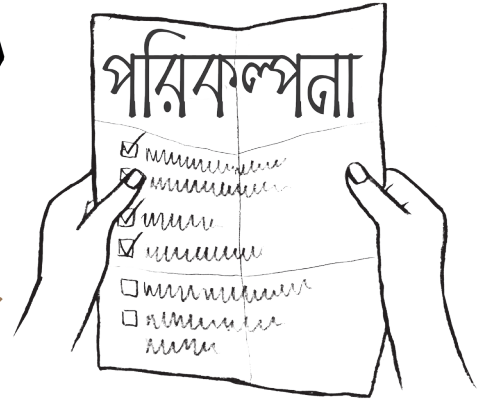 পরিকল্পনা